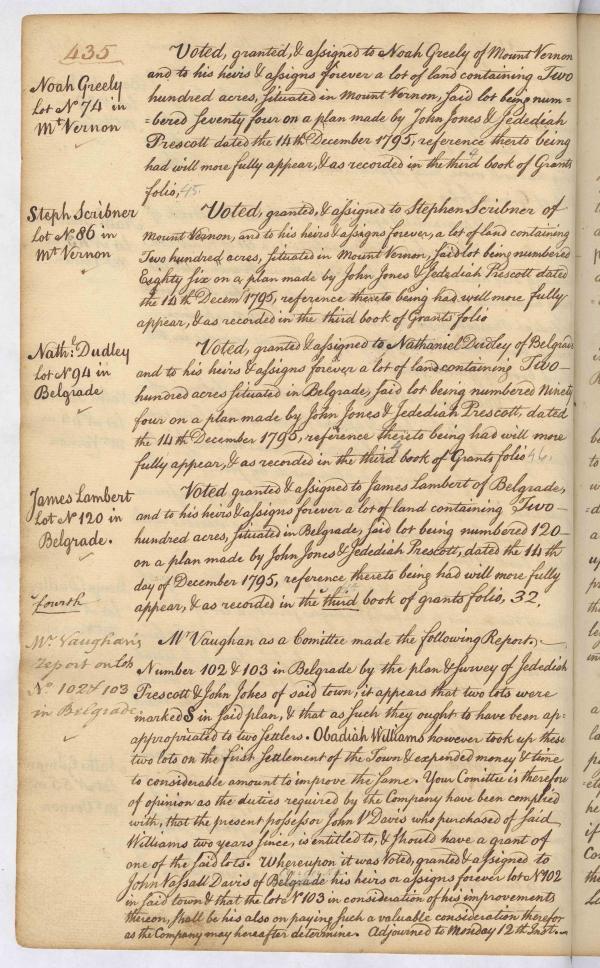 435
Noah Greely
Lot No 74 in
Mt Vernon
Voted, granted, & assigned to Noah Greely of Mount Vernon
and to his heirs & assigns forever a lot of land containing Two
hundred acres, situated in Mount Vernon, said lot being num=
=bered seventy four on a plan made by John Jones & Jedediah
Prescott dated the 14th December 1795, reference therto being
had will more fully appear, & as recorded in the third book of Grants
folio, 45.
Steph Scribner
Lot No 86 in
Mt Vernon
Voted, granted, & assigned to Stephen Scribner of
Mount Vernon, and to his heirs & assigns forever, a lot of land containing
Two hundred acres, situated in Mount Vernon, said lot being numbered
Eighty six on a plan made by John Jones & Jedediah Prescott dated
the 14th Decemr 1795, reference thereto being had will more fully
appear, & as recorded in the third book of Grants folio
Nathl: Dudley
Lot No 94 in
Belgrade
Voted, granted & assigned to Nathaniel Dudley of Belgrade
and to his heirs & assigns forever a lot of land containing Two-
hundred acres situated in Belgrade, said lot being numbered Ninety
four on a plan made by John Jones & Jedediah Prescott, dated
the 14th December 1795, reference thereto being had will more
fully appear, & as recorded in the third book of Grants folio 46.
James Lambert
Lot No 120 in
Belgrade.
Voted granted & assigned to James Lambert of Belgrade,
and to his heirs & assigns forever a lot of land containing Two-
hundred acres, situated in Belgrade, said lot being numbered 120-
on a plan made by John Jones & Jedediah Prescott, dated the 14th
day of December 1795, reference thereto being had will more fully
fourth
appear, & as recorded in the third book of grants folio, 32.
Mr. Vaughan's
report on lots
No. 102 & 103
in Belgrade.
Mr Vaughan as a Comittee made the following Report,
Number 102 & 103 in Belgrade by the plan & survey of Jedediah
Prescott & John Johes of said town, it appears that two lots were
marked S in said plan, & that as such they ought to have been ap=
appropriated to two settlers. Obadiah Williams however took up these
two lots on the first settlement of the Town & expended money & time
to considerable amount to improve the same. Your Comittee is therefore
of opinion as the duties required by the Company have been complied
with, that the present possessor John V Davis who purchased of said
Williams two years since, is entitled to, & should have a grant of
one of the said lots. Whereupon it was Voted, granted & assigned to
John Vassall Davis of Belgrade his heirs or assigns forever lot No 102
in said town & that the lot No 103 in consideration of his improvements
thereon, shall be his also on paying such a valuable consideration therefor
as the Company may hereafter determine. Adjourned to Monday 12th Inst.